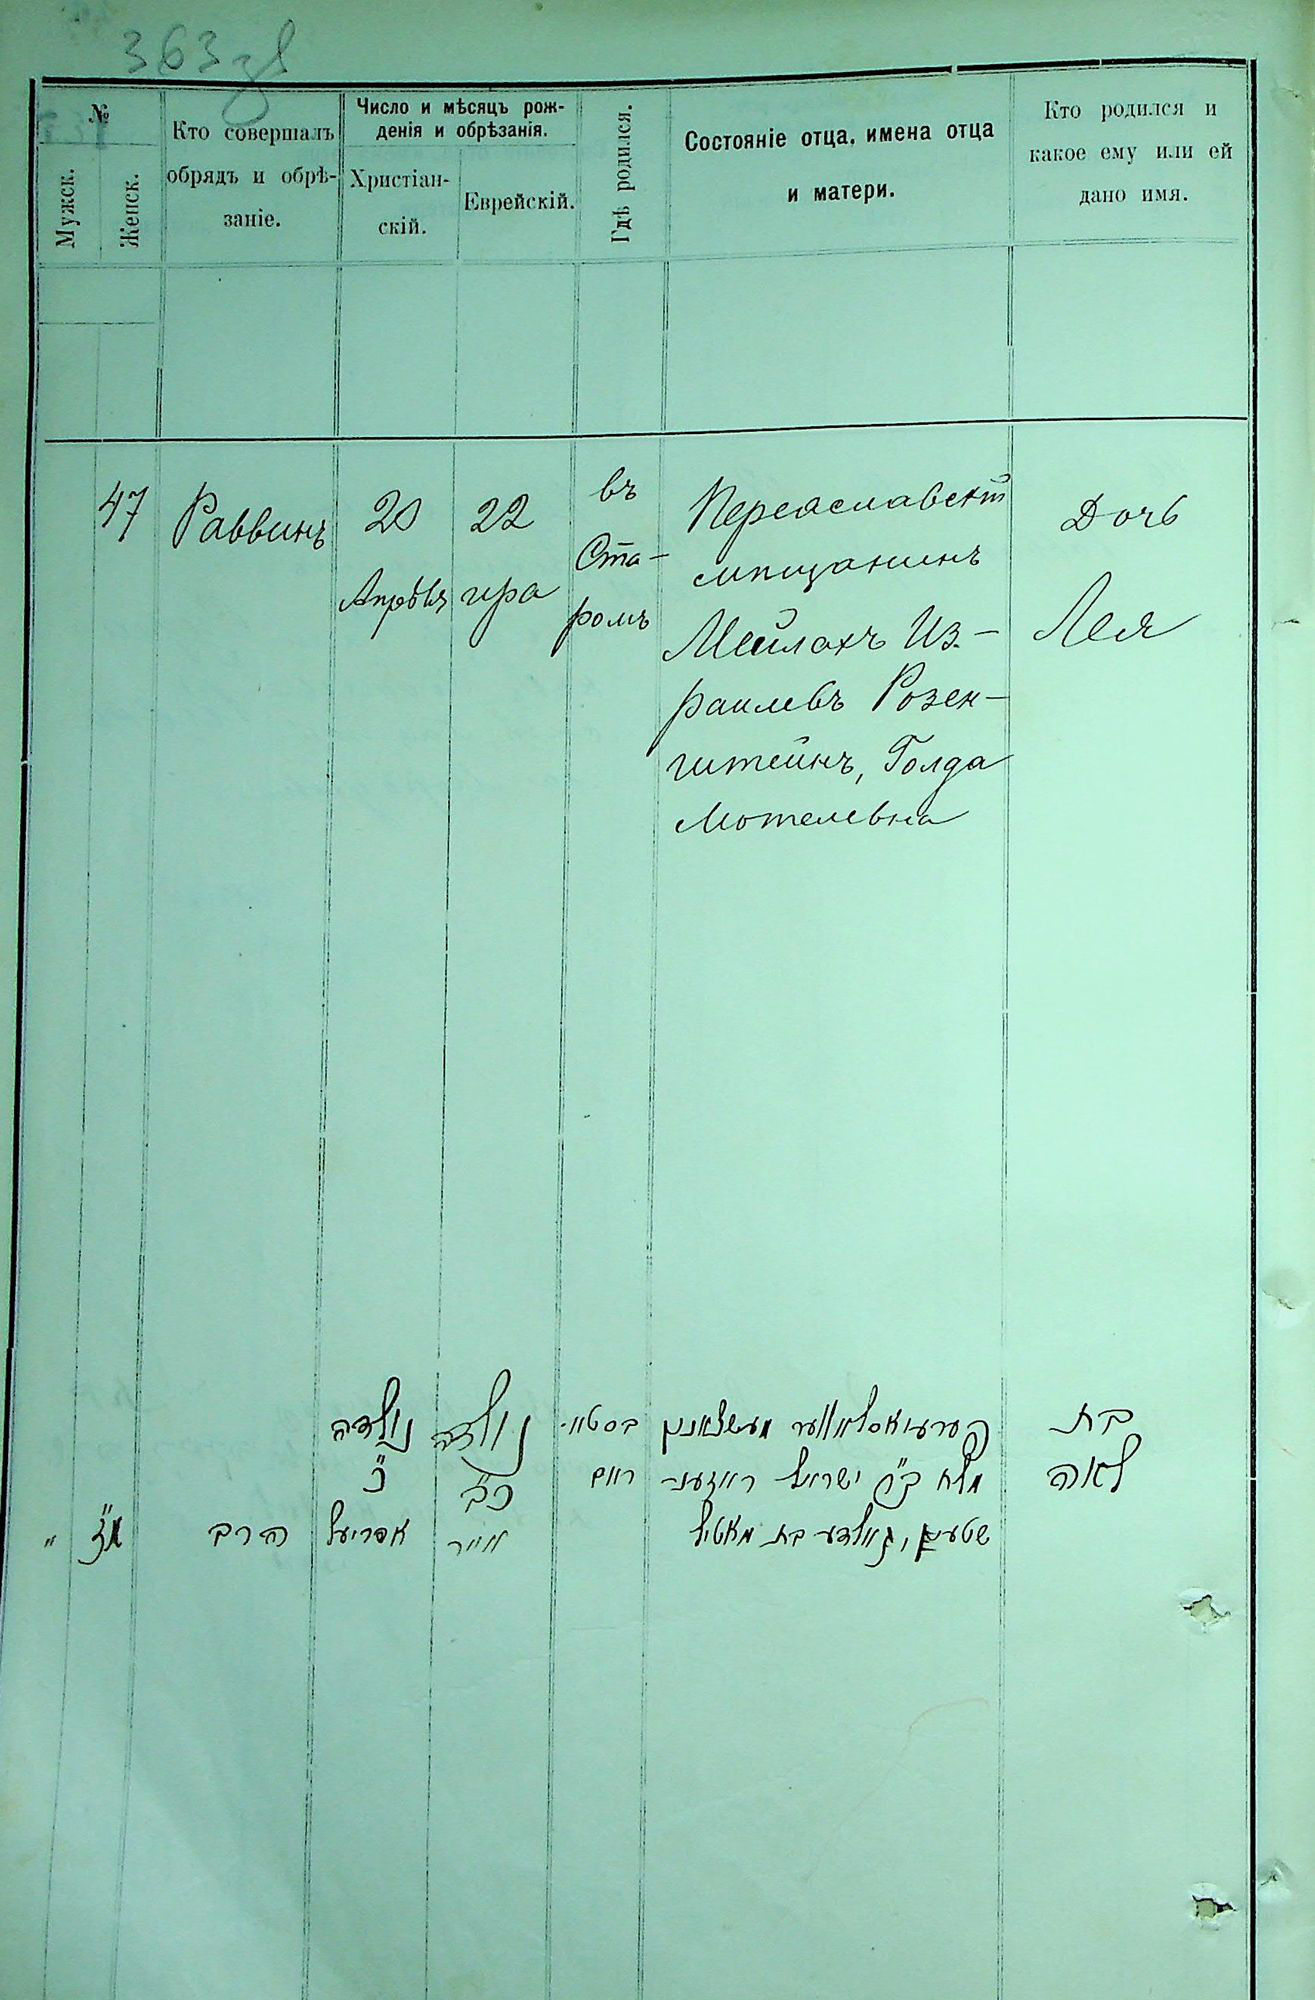 363 зв
№
Мужск.
Женск.
Кто совершалъ
обрядъ и обрѣ-
заніе.
Число и мѣсяцъ рож-
денія и обрѣзанія.
Христіан-
скій.
Еврейскій.
Гдѣ родился.
Состояніе отца, имена отца
и матери.
Кто родился и
какое ему или ей
дано имя.
47
Раввинъ
20
Апрѣля
22
ира
въ
Ста-
ромъ
Переяславскій
мѣщанинъ
Мейлахъ Из-
раилевъ Розен-
штейнъ, Голда
Мотелевна
Дочь
Лея
מ"ז
"
הרב
נולדה
כ'
אפריעל
נולדה
כ"ב
אייר
בסטא-
ראם
פערעיאסלאווער מעשצאנין
מלח ב"ר ישראל ראזענ-
שטעין, גאלדע בת מאטיל
בת
לאה